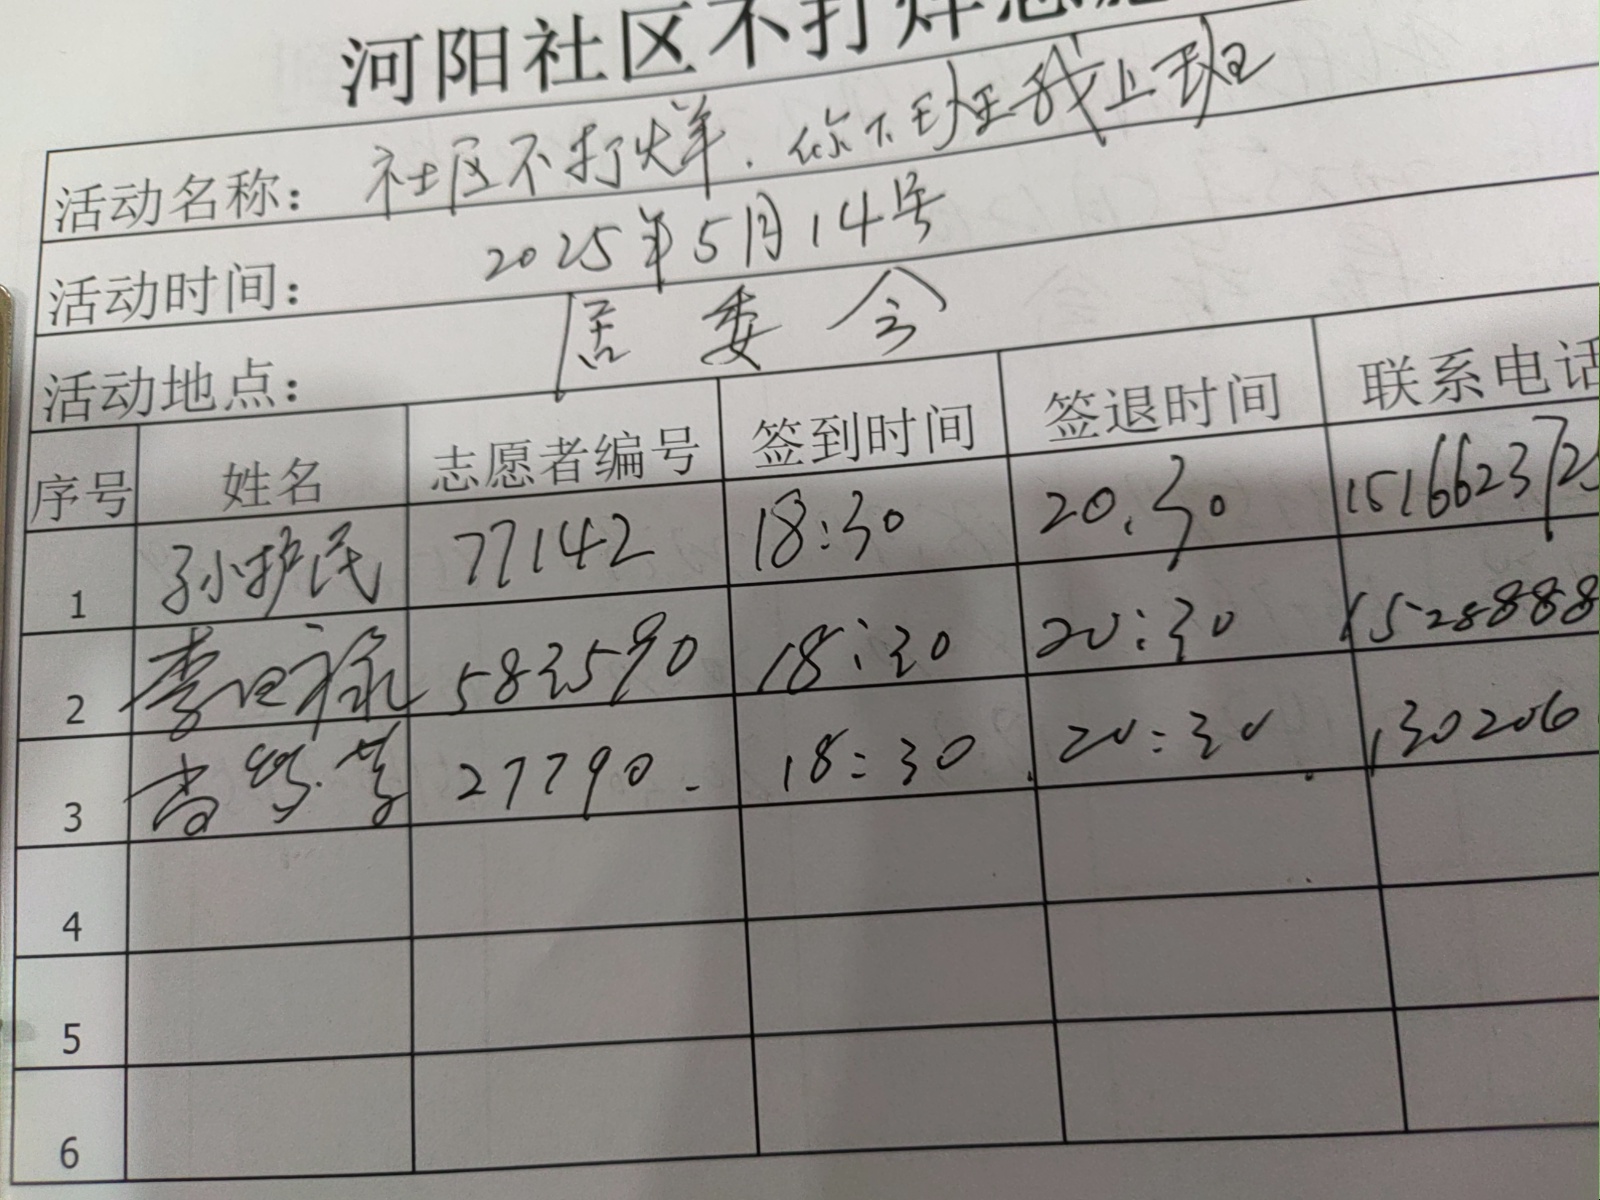 河阳社区不打烊志愿
活动名称：社区不打烊.你下班我上班
活动时间：2025年5月14号
活动地点：居委会
序号 姓名 志愿者编号 签到时间 签退时间 联系电话
1 孙护民 77142 18:30 20.30 1516623725
2 李曰禄 583590 18:30 20:30 1528888
3 27790. 18:30 20:30 130206
4
5
6